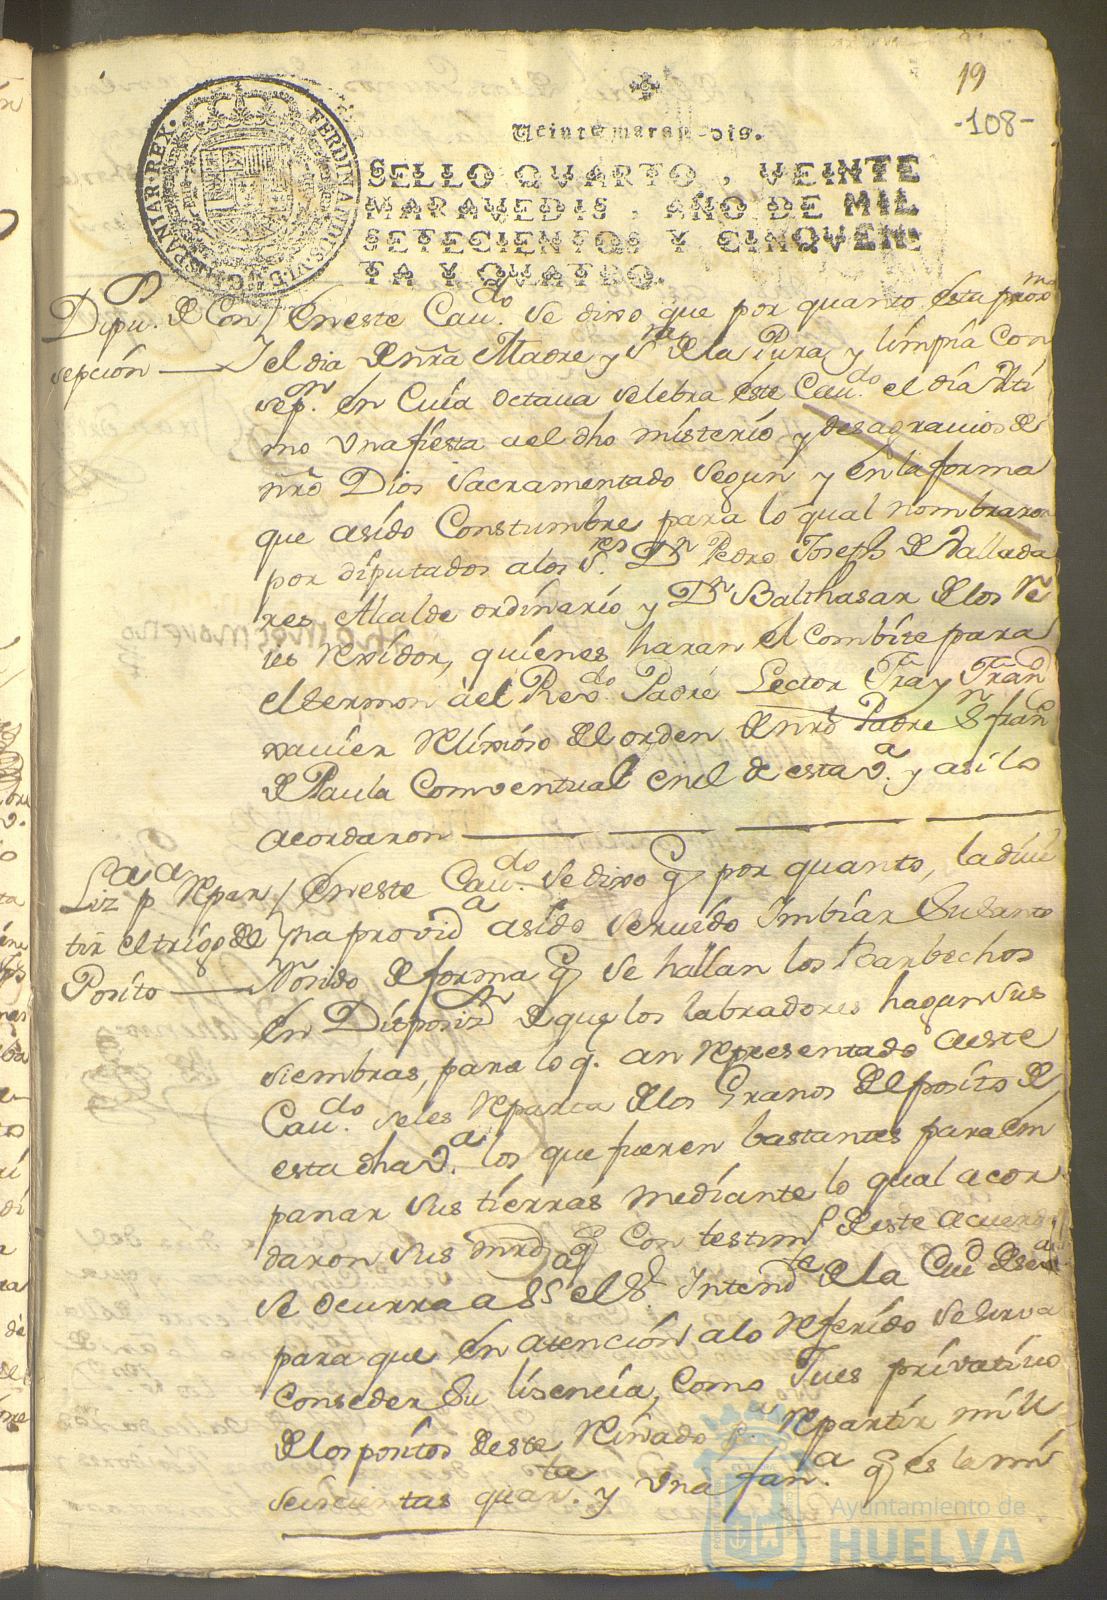 19
-108-
FERDINANDUS.VI.D.G.HISPANIAR.REX.
Veinte maravedis.
SELLO QVARTO, VEINTE
MARAVEDIS, AÑO DE MIL
SETECIENTOS Y CINQVEN
TA Y QVATRO.
Dipu. de Con
sepción
En este Cau.do se dixo que por quanto esta proxmo
el dia de nrã Madre y Sra de la Pura y limpia Con
sepn. en Cuia octaua selebra este Cau.do el dia Ulti
mo una fiesta a el dho misterio y desagrauios de
nrõ Dios Sacramentado segun y en la forma
que asido Constumbre para lo qual nombraron
por diputados a los Sres. Dn Pedro Joseph de Valladا
res Alcalde ordinario y Dn Balthasar de los Re
ies Rexidor, quienes haran el combite para
el sermon àel Revdo. Padre Lector Fray Franco
xauier Relixioso de el orden de nrõ Padre Sn Franco
de Paula Comventual en el de esta Va. y asi lo
acordaron
Liza pa Repar
tir el trigo de el
Posito
En este Cau.do se dixo q por quanto, la diui
na providа asido seruido Imbiar su santo
Rosido de forma q se hallan los Barbechos
en Disposizn de que los labradores hagan sus
siembras, para lo q. an Representado a este
Cau.do se les Reparta de los Granos de el posito de
esta dha Va. los que fueren bastantes para em
panar sus tierras mediante lo qual acor
daron sus mrds q Con testimo de este acuerdo
se ocurra a el Sr Intendte de la Ciud de Seva
para que en atencion a lo Referido se sirva
Conseder su lisencia, Como Jues privativo
de los positos de este Reinado pa. Repartir mill
seiscientas quarta. y una fana. q es la mi
Ayuntamiento de
HUELVA